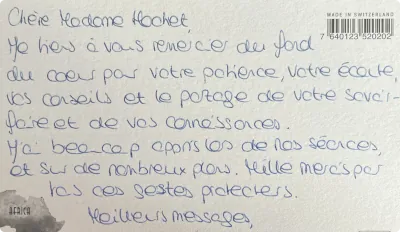 Chère Madame Hochet,
MADE IN SWITZERLAND
7 640123 520202
Je tiens à vous remercier du fond
du coeur pour votre patience, votre écoute,
vos conseils et le partage de votre savoir-
faire et de vos connaissances.
J'ai beaucoup appris lors de nos séances,
et sur de nombreux plans. Mille mercis pour
tous ces gestes protecteurs.
AFRICA
Meilleurs messages,